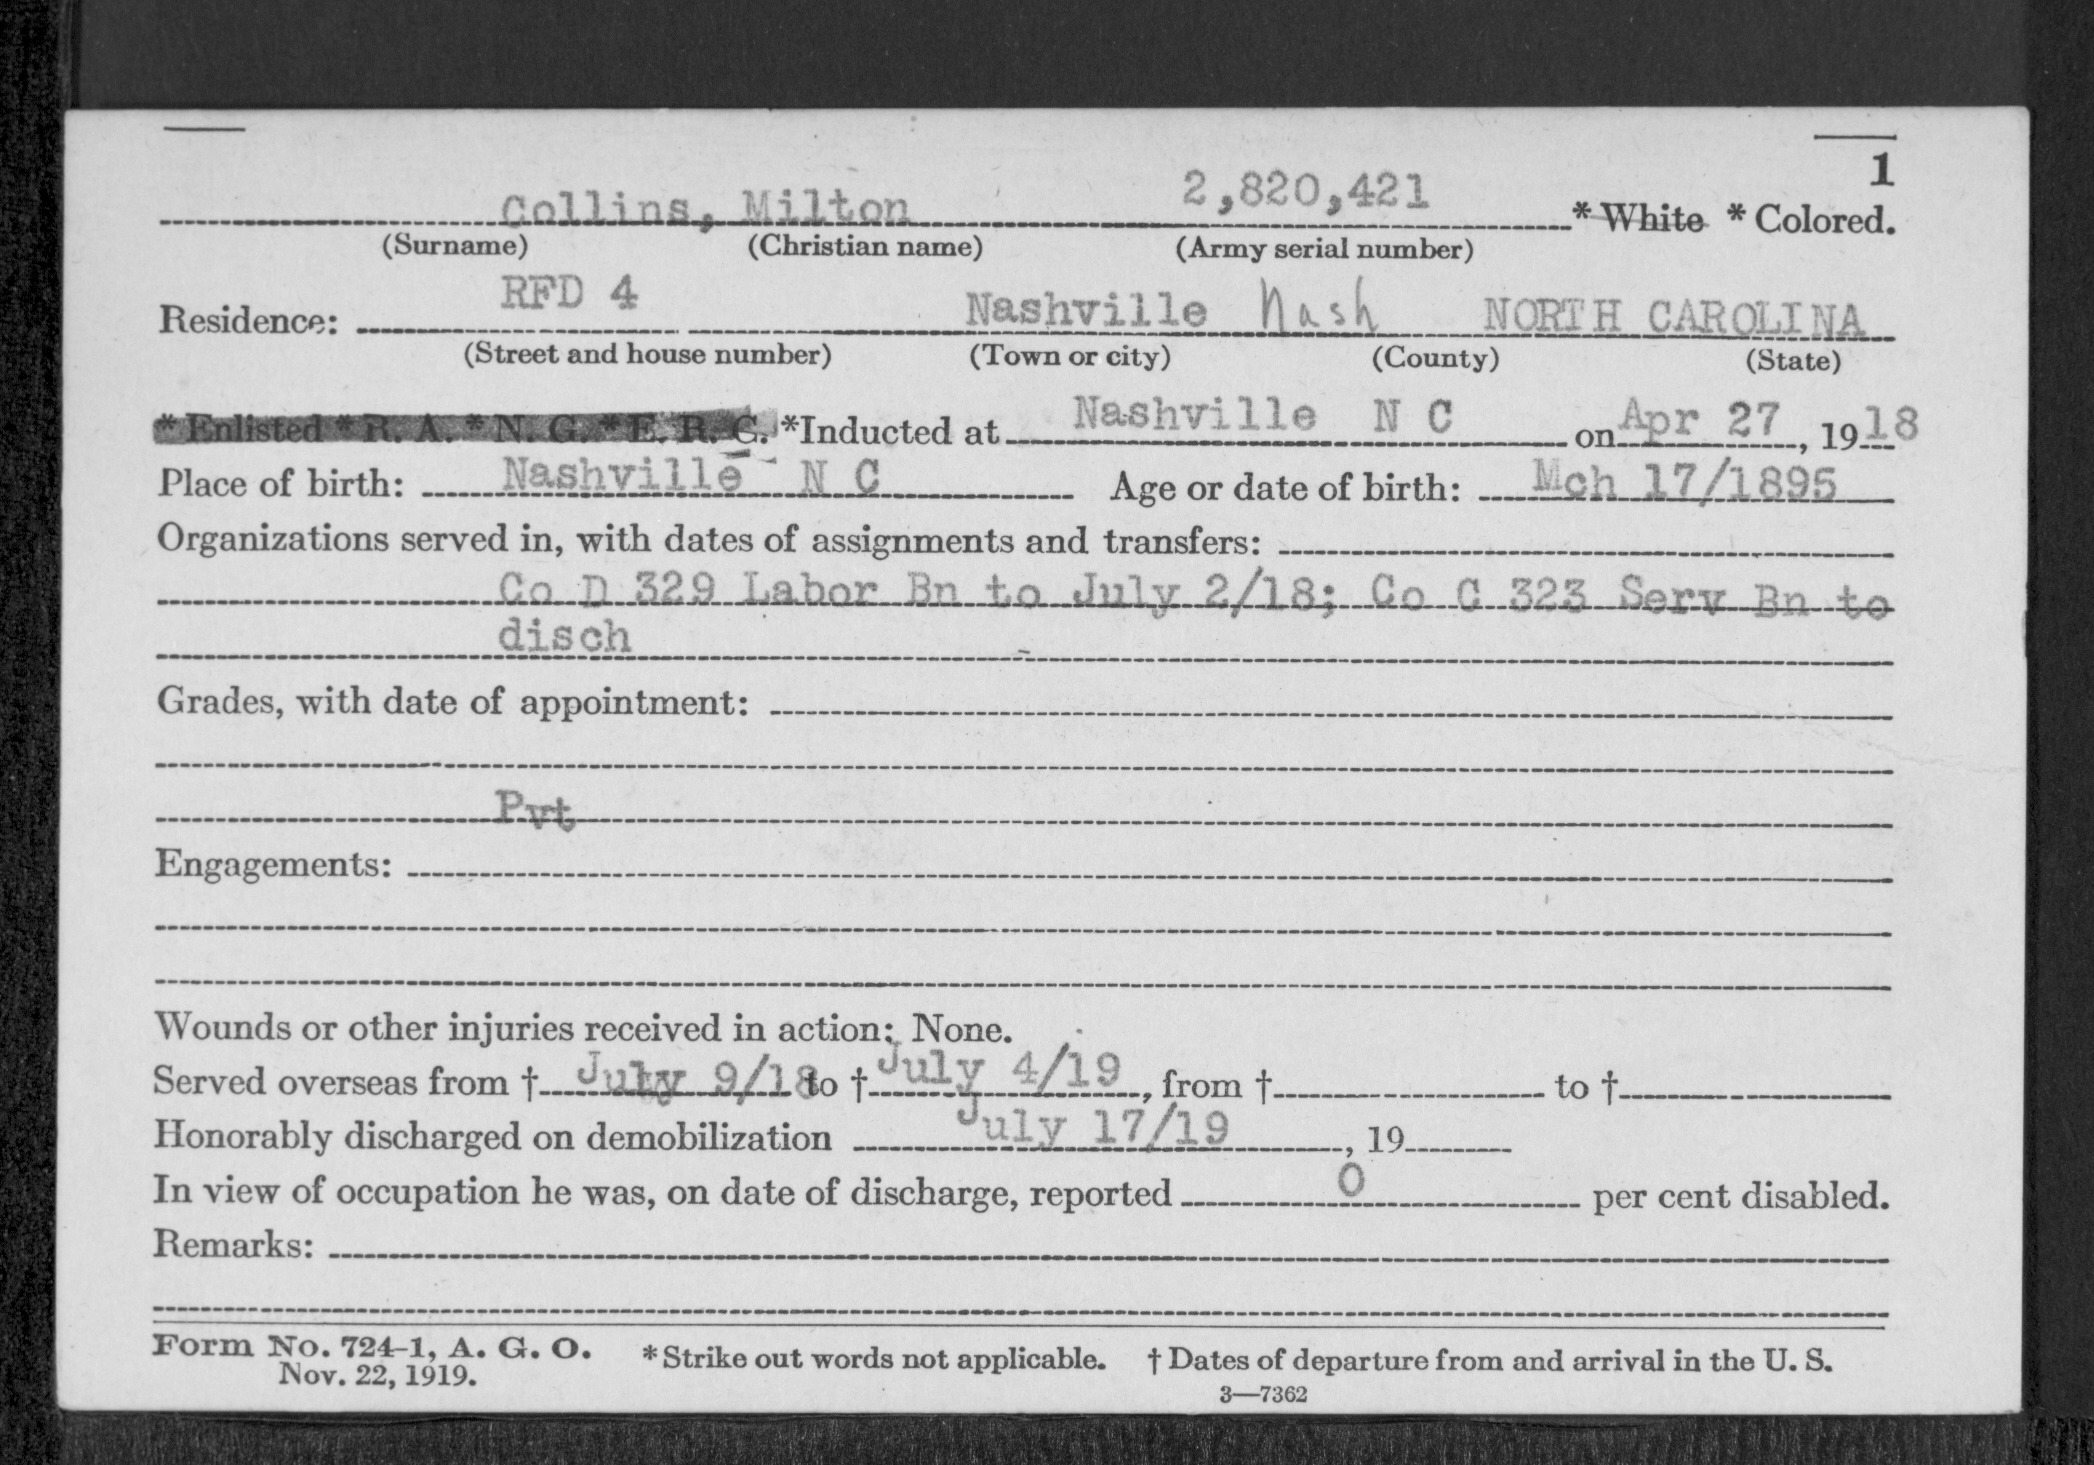 1
Collins, Milton 2,820,421 * White * Colored.
(Surname) (Christian name) (Army serial number)
RFD 4 Nashville Nash NORTH CAROLINA
Residence:
(Street and house number) (Town or city) (County) (State)
* Enlisted * R. A. * N. G. * E. R. C. *Inducted at Nashville N C on Apr 27, 1918
Place of birth: Nashville N C Age or date of birth: Mch 17/1895
Organizations served in, with dates of assignments and transfers:
Co D 329 Labor Bn to July 2/18; Co C 323 Serv Bn to
disch
Grades, with date of appointment:
Pvt
Engagements:
Wounds or other injuries received in action: None.
Served overseas from † July 9/18 to † July 4/19, from † to †
Honorably discharged on demobilization July 17/19, 19
In view of occupation he was, on date of discharge, reported 0 per cent disabled.
Remarks:
Form No. 724-1, A. G. O. * Strike out words not applicable. † Dates of departure from and arrival in the U. S.
Nov. 22, 1919.
3—7362